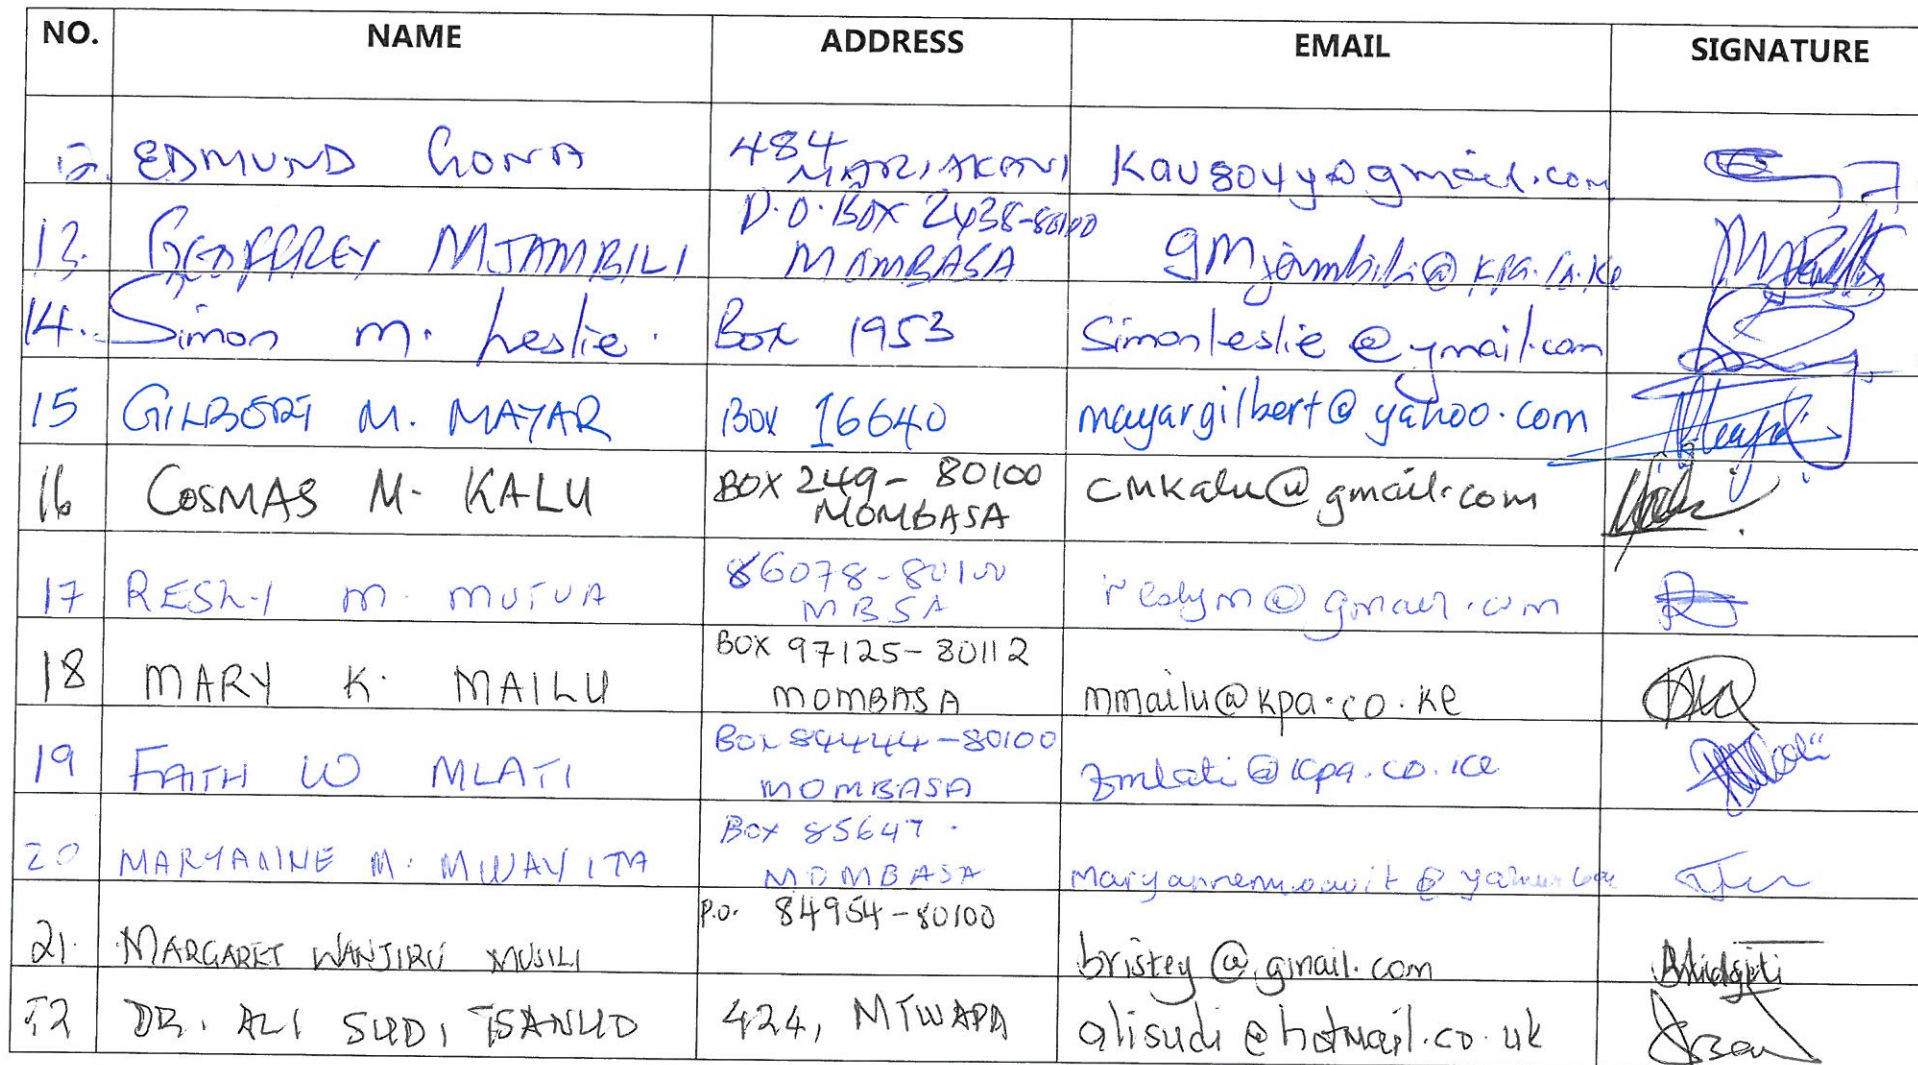 NO. NAME ADDRESS EMAIL SIGNATURE
12. EDMUND GONA 484 MARIAKANI
13. GEOFFREY MJAMBILI P.O. BOX 2438-80100 MOMBASA gmjambili@kpa.co.ke
14. Simon M. Leslie. Box 1953 Simonleslie@ymail.com
15 GILBERT M. MAYAR BOX 16640 mayargilbert@yahoo.com
16 COSMAS M. KALU BOX 249-80100 MOMBASA cmkalu@gmail.com
17 RESLY M. MUTUA 86078-80100 MBSA reslym@gmail.com
18 MARY K. MAILU BOX 97125-80112 MOMBASA mmailu@kpa.co.ke
19 FAITH W MLATI Box 84444-80100 MOMBASA fmlati@kpa.co.ke
20 MARYANNE M. MWAVITA Box 85647. MOMBASA
21. MARGARET WANJIRU MUSILI P.O. 84954-80100 bristey@gmail.com
22 DR. ALI SUDI TSANUO 424, MTWAPA alisudi@hotmail.co.uk